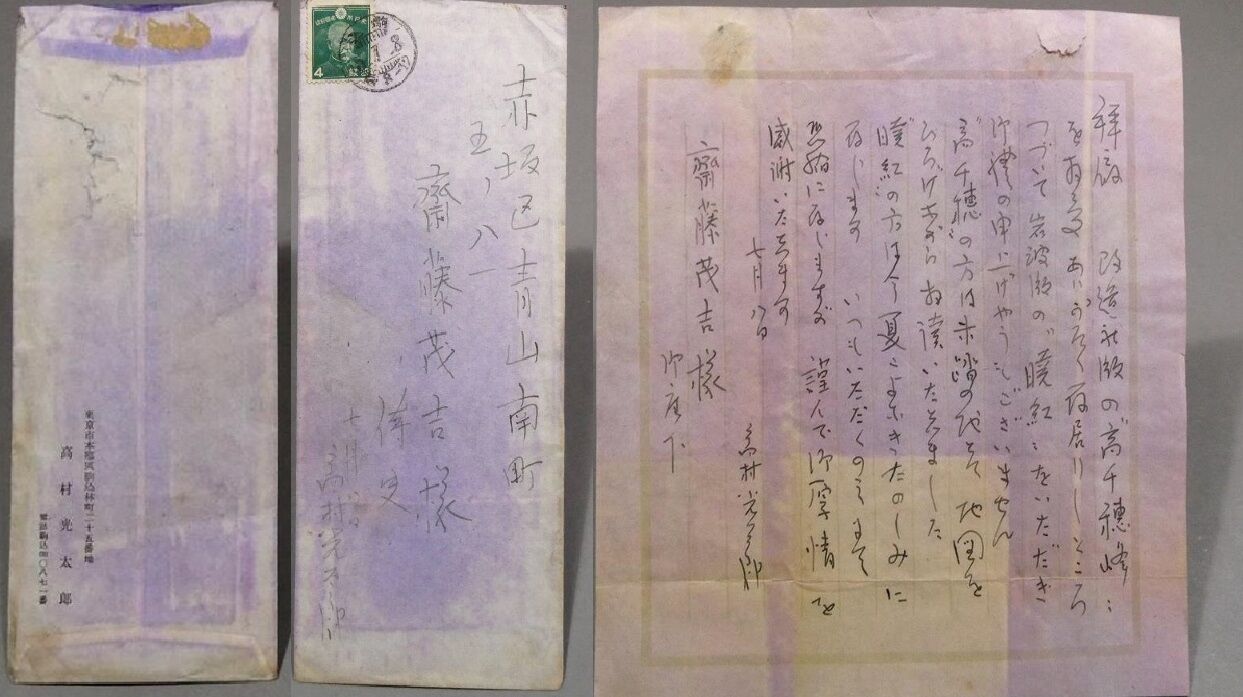 東京市本郷區駒込林町二十五番地
高村光太郎
赤坂区青山南町
五ノ八一
齋藤茂吉様
侍史
七月八日
高村光太郎
4
拝啓 改造社版の〝高千穂峰〟
をお受 ありがたく存居りしところ
つづいて岩波版の〝暁紅〟をいただき
御禮の申上げやうもございません
〝高千穂〟の方は未踏の地とて 地図を
ひろげながらお讀いたしました
〝暁紅〟の方は今夏こよなきたのしみに
存じます いつもいただくのみにて
恐縮に存じますが 謹んで御厚情を
感謝いたします
七月八日
高村光太郎
齋藤茂吉様
御座下